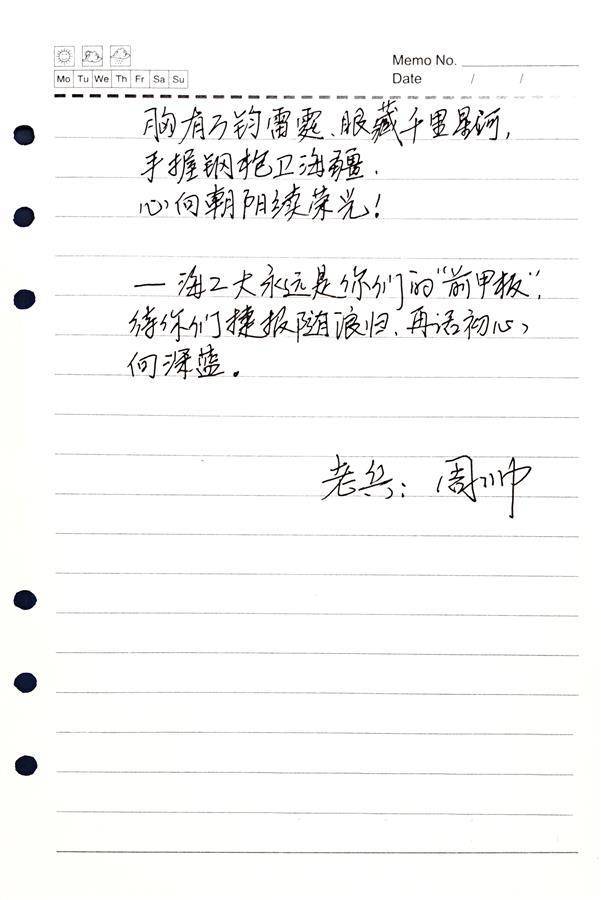 Memo No.
Mo Tu We Th Fr Sa Su
Date / /
胸有万钧雷霆、眼藏千里星河,
手握钢枪卫海疆.
心向朝阳续荣光!
— 海工大永远是你们的"前甲板",
待你们捷报随浪归、再话初心
向深蓝。
老兵: 周帅